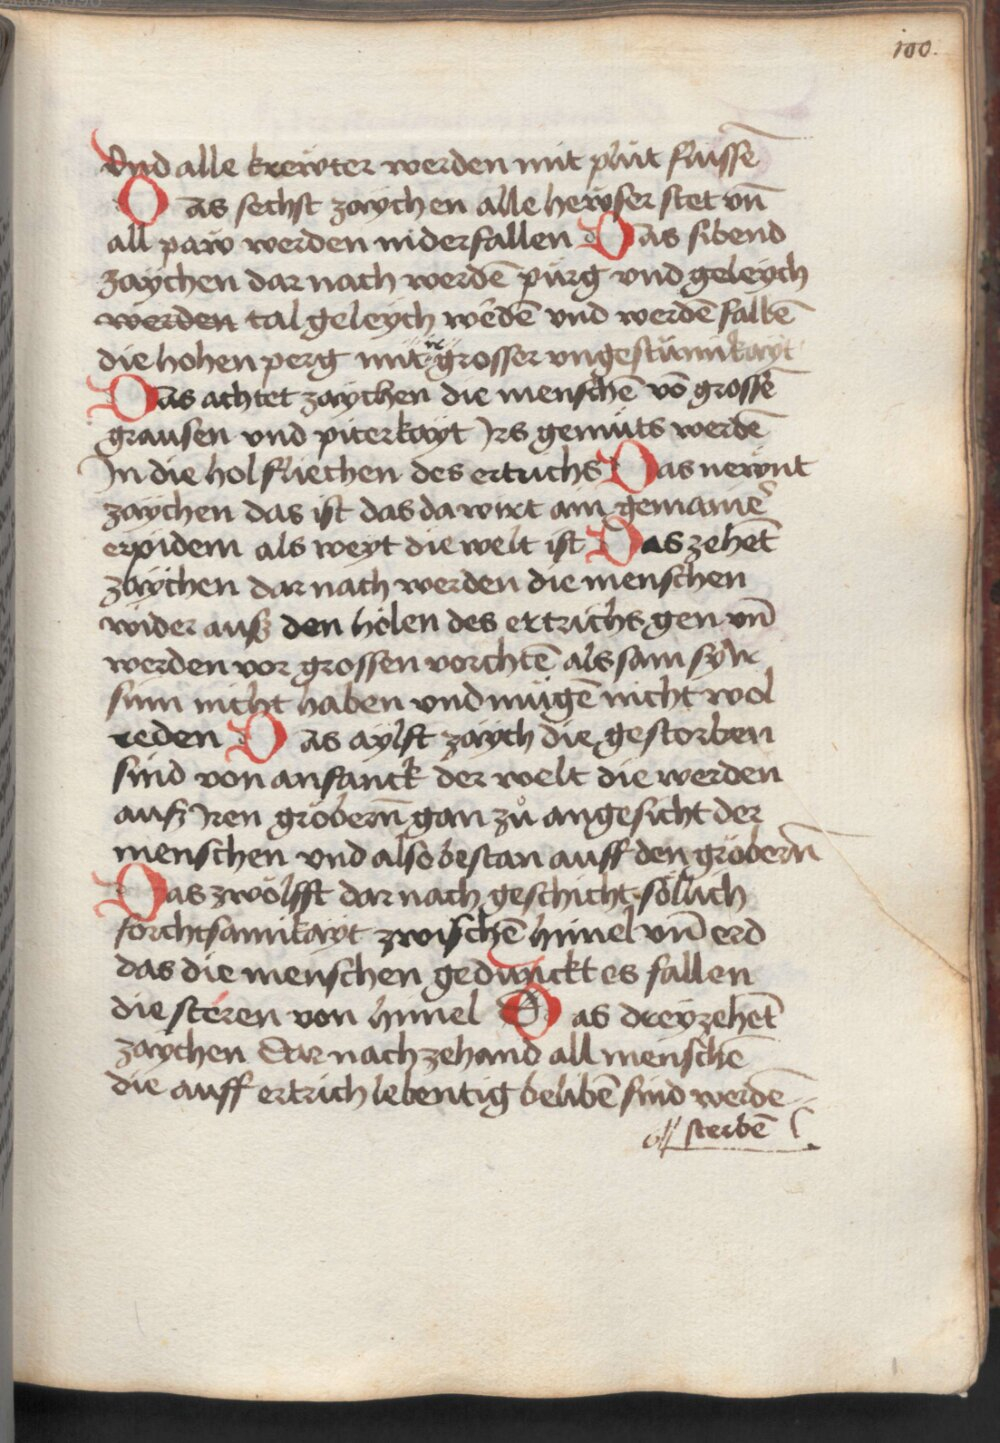 100.
Vnd alle krewter werden mit plut flüssē
Das sechst zaychen alle hewser stet vn̄
all paw werden niderfallen Das sibend
zaychen dar nach werdē pürg vnd geleych
werden tal geleych wēdē vnd werdē fallē
die hohen perg mit grosser vngestümikayt
Das achtet zaychen die menschē vō grossē
grausen vnd piterkayt Irs gemüts werdē
In die hol fliechen des ertrichs Das newnt
zaychen das ist das da wirt ain gemainē
erpidem als weyt die welt ist Das zehēt
zaychen dar nach werden die menschen
wider auß den hölen des ertrichs gen vn̄
werden vor grossen vorchtē als sam sy ir
sinn nicht haben vnd mügē nicht wol
reden Das aylft zaych die gestorben
sind von anfanck der welt die werden
auß Iren grebern̄ gan zů angesicht der
menschen vnd also bestan auff den grebern̄
Das zwölfft dar nach geschicht sölich
forchtsamikayt zwischē himel vn̄ erd
das die menschen gedunckt es fallen
die steren von himel Das dreyzehēt
zaychen Dar nach zehand all menschē
die auff ertrich lebentig belibē sind werdē
sterbē